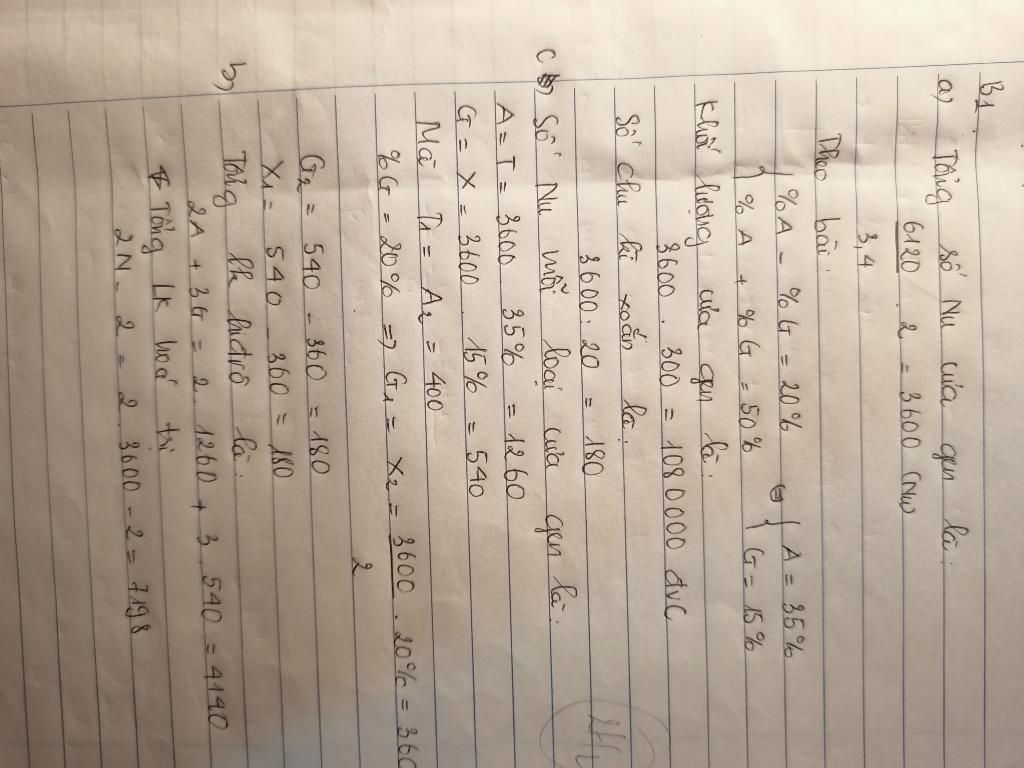 B1.
a) Tổng số Nu của gen là:
6120 . 2 = 3600 (nu)
3,4
Theo bài:
{ %A - %G = 20% ⇔ { A = 35%
{ %A + %G = 50% { G = 15%
Khối lượng của gen là:
3600 . 300 = 1080 000 đvC
Số chu kì xoắn là:
3600 : 20 = 180
c) Số Nu mỗi loại của gen là:
A = T = 3600 . 35% = 1260
G = X = 3600 . 15% = 540
Mà T1 = A2 = 400
%G = 20% => G1 = X2 = 3600 . 20% = 360
2
G2 = 540 - 360 = 180
X1 = 540 - 360 = 180
b) Tổng lk hiđrô là:
2A + 3G = 2. 1260 + 3. 540 = 4140
Tổng lk hoá trị
2N - 2 = 2. 3600 - 2 = 7198